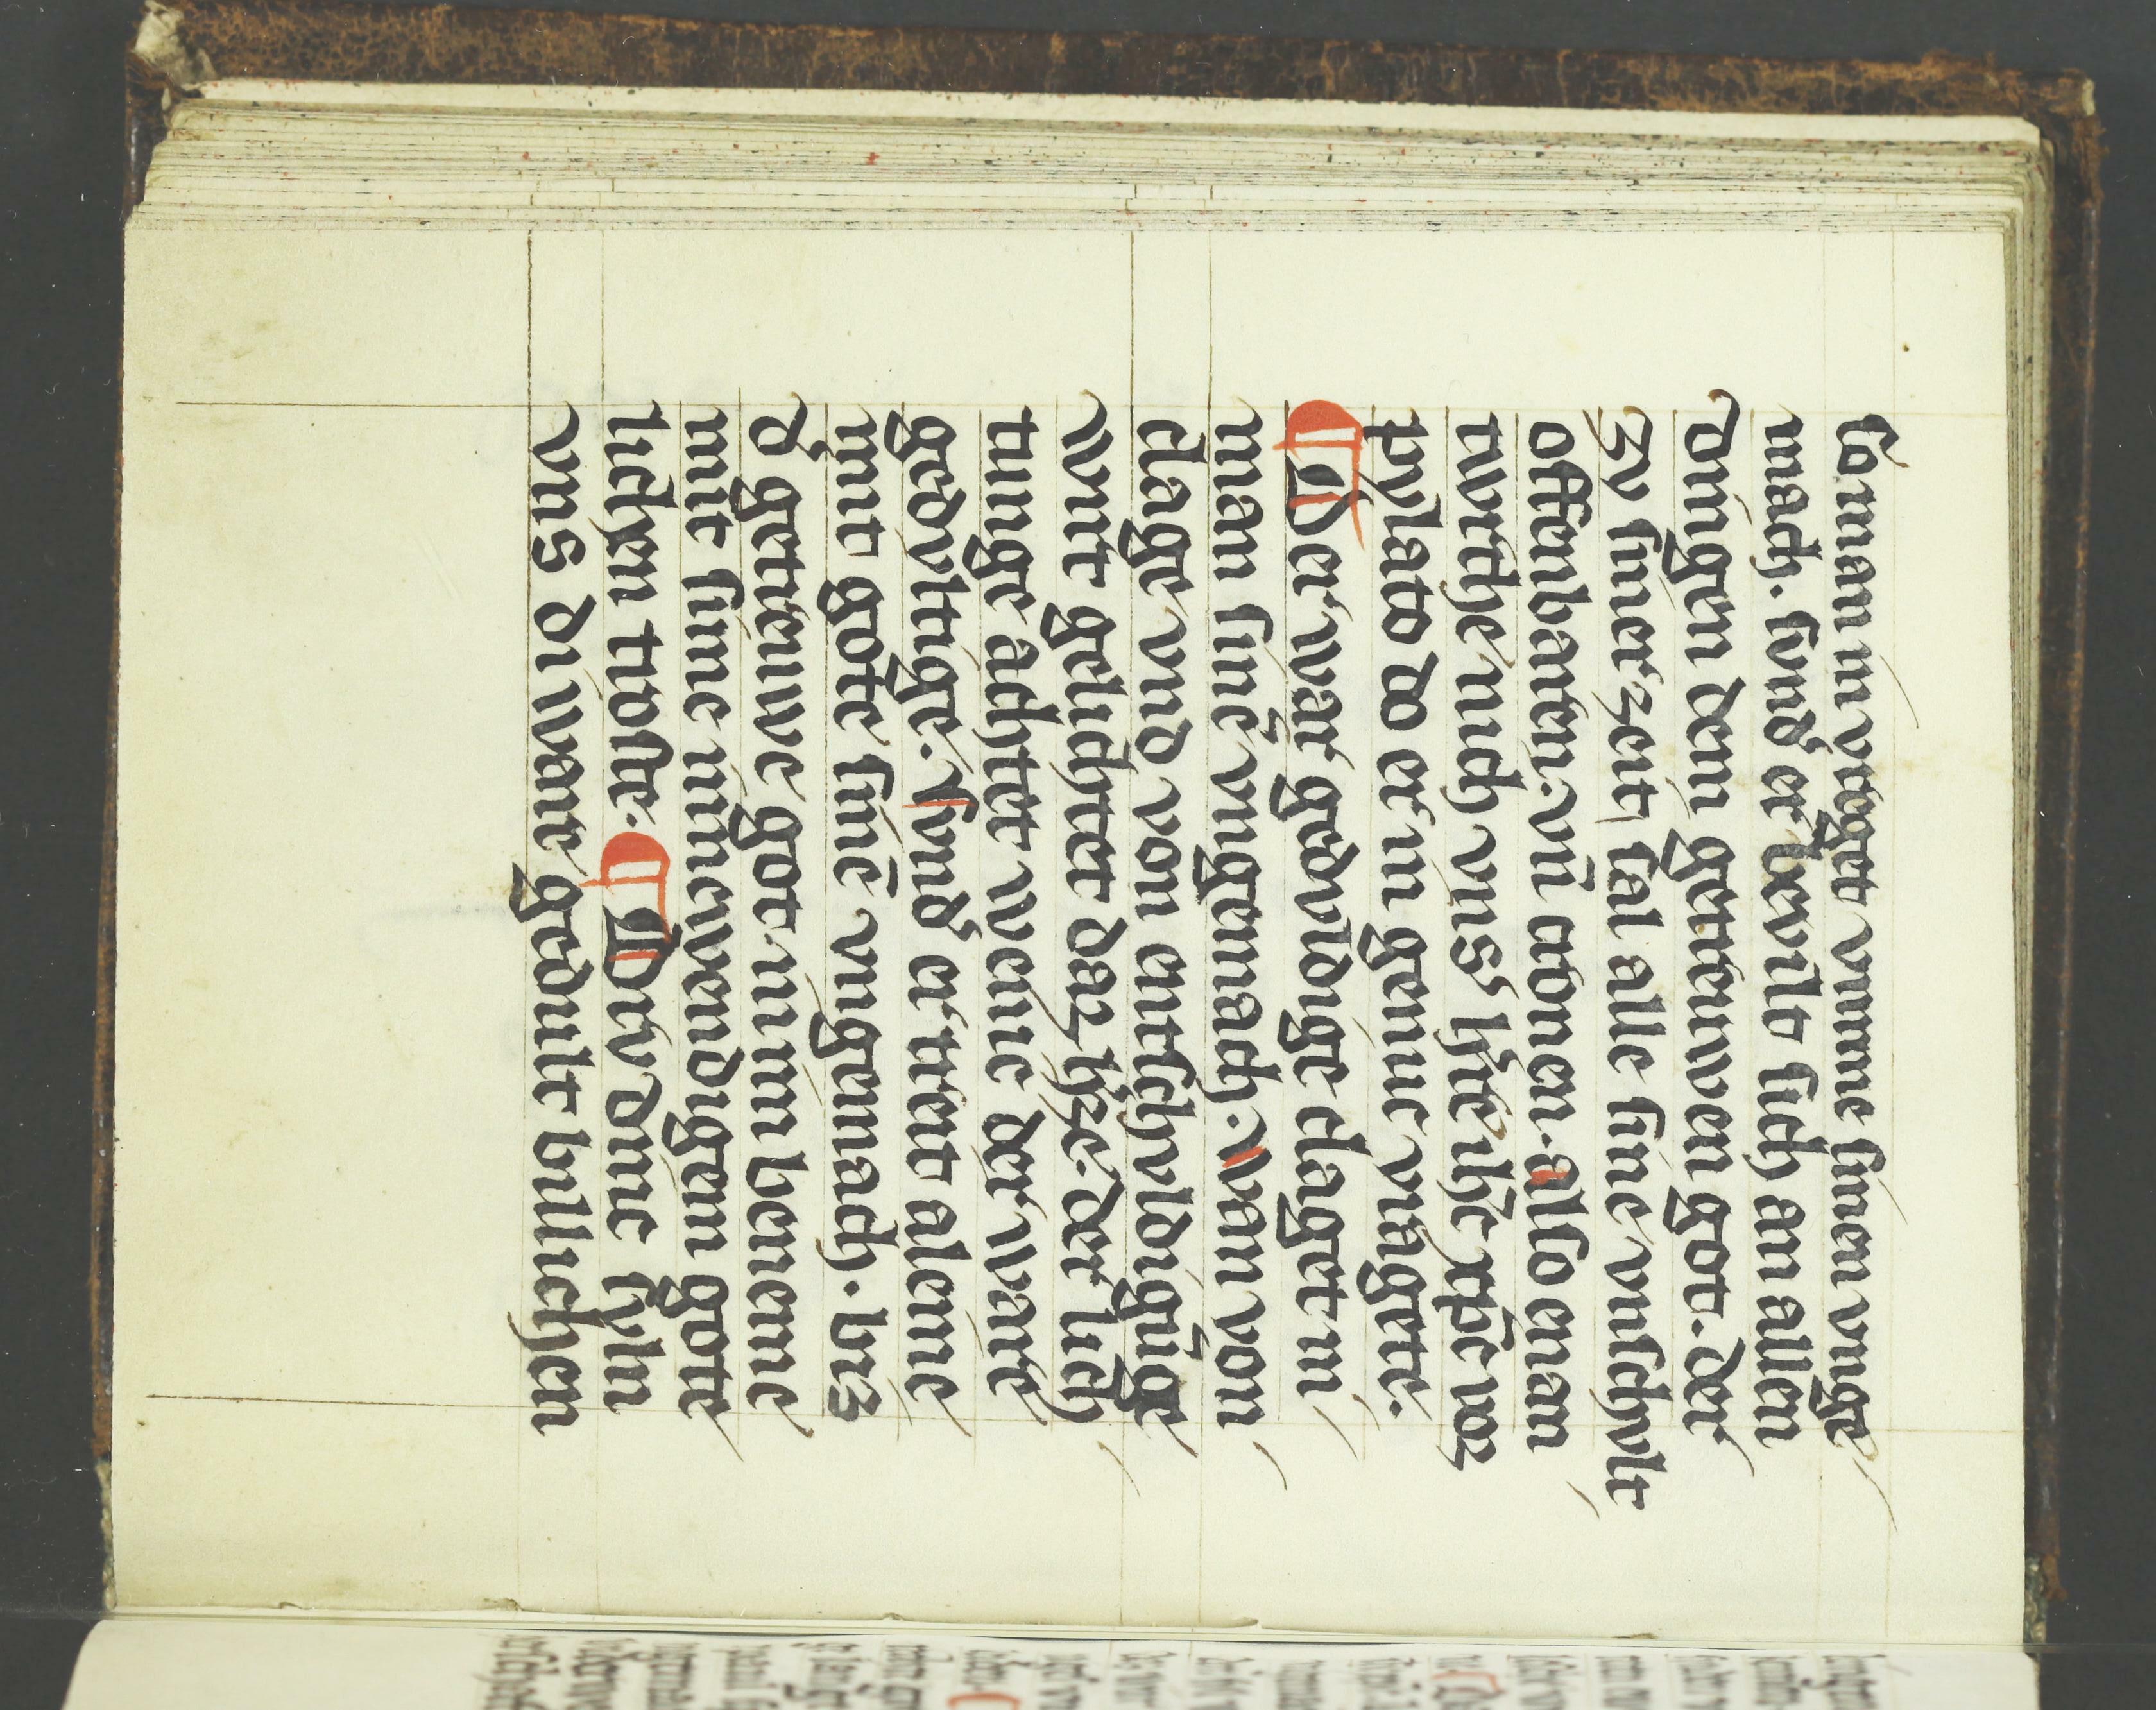 so man in vraget vmme sinen vnge
mach. sund̾ er bevilt sich an allen
dingen dem getruwen got. der
zv siner zeit sal alle sine vnschvlt
offenbaren. vn̄ cronen. also enan
twrthe nich vns h̾re ihc̄ xp̄c vor
pylato do er in genuc vragete.
¶ Der war gedvldige claget in
man sinē vngemach. wan von
clage vnd von entschvldigūge
wirt gelichtet daz h̾ze. der lich
tunge achtet weinc der ware
gedvltige. svnd̾ er treit aleine
mit gote sinē vngemach. biz
d̾ getruwe got nimm beneme
mit sime innewendigem gote
lichen troste. ¶ Drv dinc svln
vns di ware gedult billichen